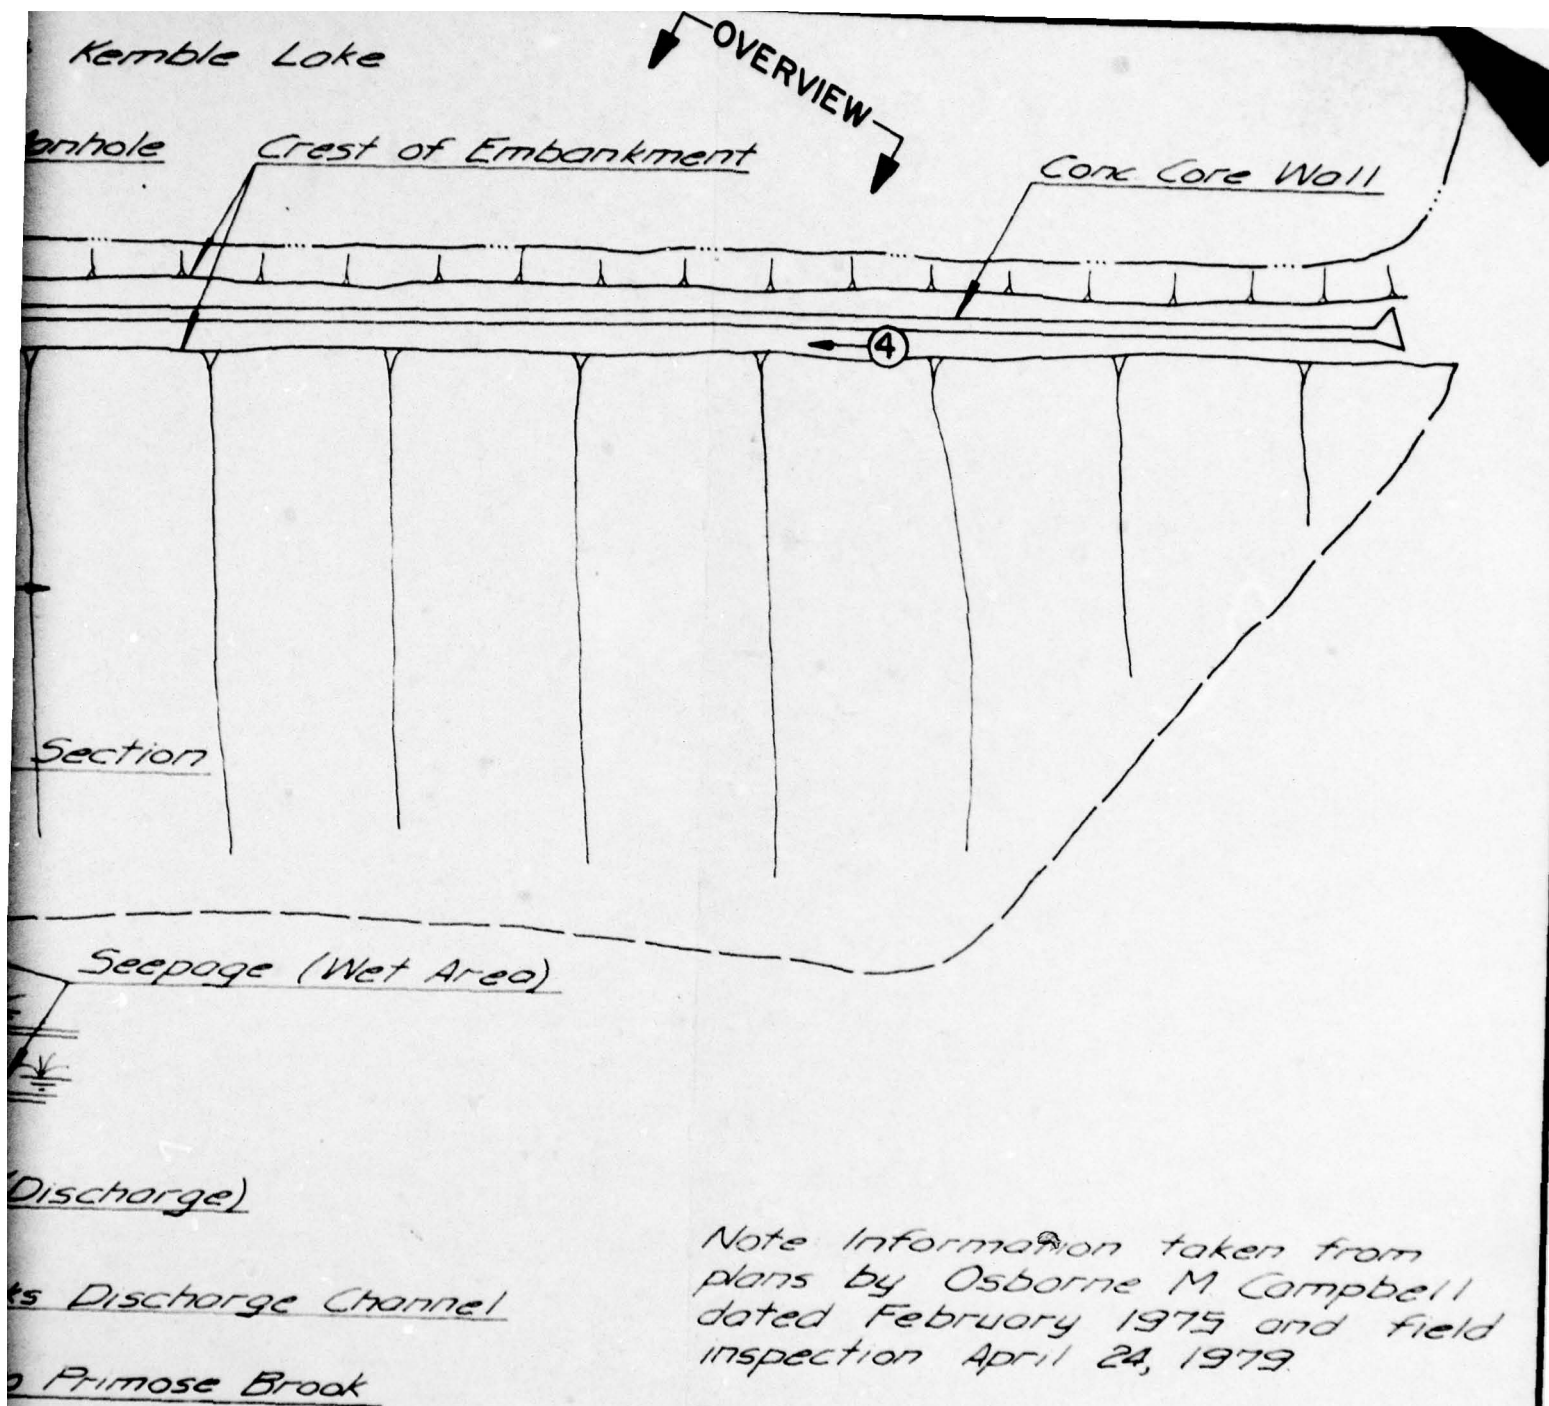 Kemble Lake
OVERVIEW
Crest of Embankment
Conc. Core Wall
4
Section
Seepage (Wet Area)
(Discharge)
Discharge Channel
Primose Brook
Note Information taken from
plans by Osborne M. Campbell
dated February 1975 and field
inspection April 24, 1979.